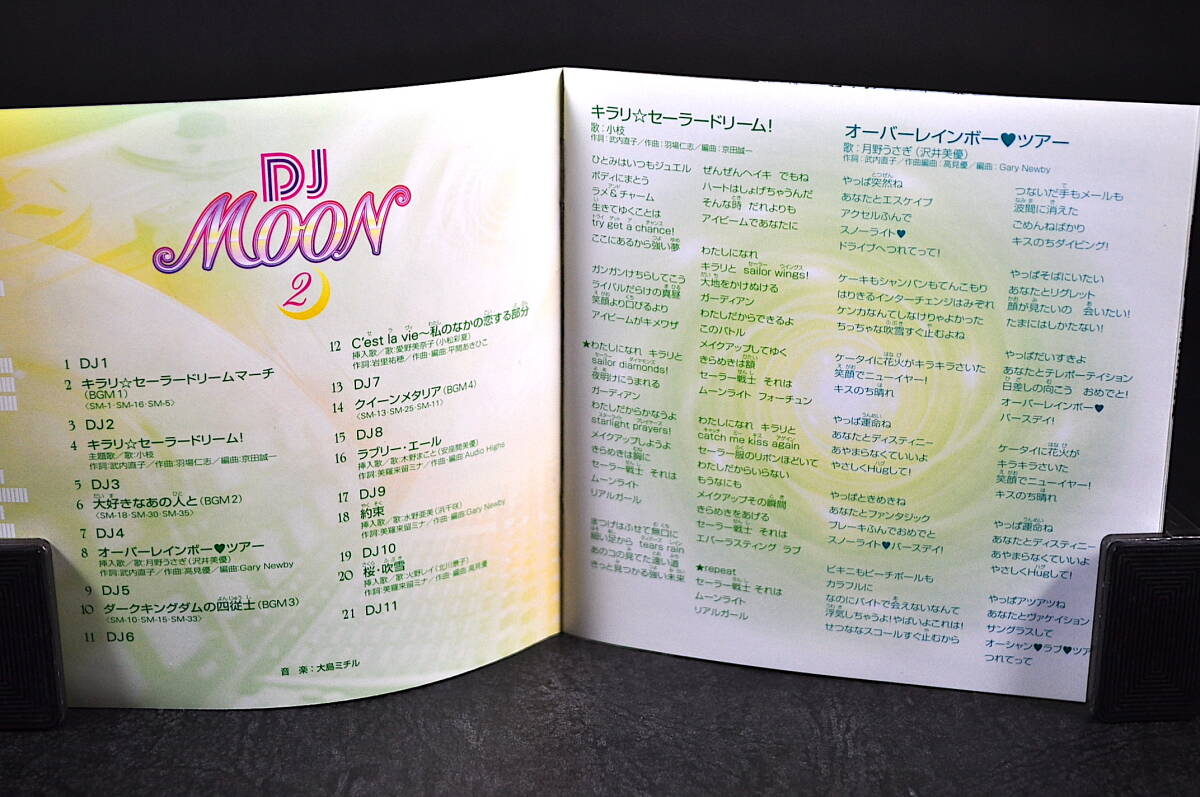 DJ
MOON
2
1 DJ1
2 キラリ☆セーラードリームマーチ
(BGM1)
<SM-1・SM-16・SM-5>
3 DJ2
4 キラリ☆セーラードリーム!
主題歌/歌:小枝
作詞:武内直子/作曲:羽場仁志/編曲:京田誠一
5 DJ3
6 大好きなあの人と(BGM2)
<SM-18・SM-30・SM-35>
7 DJ4
8 オーバーレインボー♥ツアー
挿入歌/歌:月野うさぎ(沢井美優)
作詞:武内直子/作曲:高見優/編曲:Gary Newby
9 DJ5
10 ダークキングダムの四従士(BGM3)
<SM-10・SM-15・SM-33>
11 DJ6
12 C'est la vie〜私のなかの恋する部分
挿入歌/歌:愛野美奈子(小松彩夏)
作詞:岩里祐穂/作曲・編曲:平間あきひこ
13 DJ7
14 クイーンメタリア(BGM4)
<SM-13・SM-25・SM-11>
15 DJ8
16 ラブリー・エール
挿入歌/歌:木野まこと(安座間美優)
作詞:美羅来留ミナ/作曲・編曲:Audio Highs
17 DJ9
18 約束
挿入歌/歌:水野亜美(浜千咲)
作詞:美羅来留ミナ/作曲・編曲:Gary Newby
19 DJ10
20 桜・吹雪
挿入歌/歌:火野レイ(北川景子)
作詞:美羅来留ミナ/作曲・編曲:高見優
21 DJ11
音 楽:大島ミチル
キラリ☆セーラードリーム!
歌:小枝
作詞:武内直子/作曲:羽場仁志/編曲:京田誠一
ひとみはいつもジュエル
ボディにまとう
ラメ&チャーム
生きてゆくことは
try get a chance!
ここにあるから強い夢
ガンガンけちらしてこう
ライバルだらけの真昼
笑顔より口びるより
アイビームがキメワザ
★わたしになれ キラリと
sailor diamonds!
夜明けにうまれる
ガーディアン
わたしだからかなうよ
starlight prayers!
メイクアップしようよ
きらめきは胸に
セーラー戦士 それは
ムーンライト
リアルガール
まつげはふせて無口に
細い足から tears rain
あのコの見てた遠い道
きっと見つかる強い未来
ぜんぜんヘイキ でもね
ハートはしょげちゃうんだ
そんな時 だれよりも
アイビームであなたに
わたしになれ
キラリと sailor wings!
大地をかけぬける
ガーディアン
わたしだからできるよ
このバトル
メイクアップしてゆく
きらめきは額
セーラー戦士 それは
ムーンライト フォーチュン
わたしになれ キラリと
catch me kiss again
セーラー服のリボンほどいて
わたしだからいらない
もうなにも
メイクアップその瞬間
きらめきをあげる
セーラー戦士 それは
エバーラスティング ラブ
★repeat
セーラー戦士 それは
ムーンライト
リアルガール
オーバーレインボー♥ツアー
歌:月野うさぎ(沢井美優)
作詞:武内直子/作曲編曲:高見優/編曲:Gary Newby
やっぱ突然ね
あなたとエスケイプ
アクセルふんで
スノーライト♥
ドライブへつれてって!
ケーキもシャンパンもてんこもり
はりきるインターチェンジはみぞれ
ケンカなんてしなけりゃよかった
ちっちゃな吹雪すぐ止むよね
ケータイに花火がキラキラさいた
笑顔でニューイヤー!
キスのち晴れ
やっぱ運命ね
あなたとディスティニー
あやまらなくていいよ
やさしくHugして!
やっぱときめきね
あなたとファンタジック
ブレーキふんでおめでと
スノーライト♥バースデイ!
ビキニもビーチボールも
カラフルに
なのにバイトで会えないなんて
浮気しちゃうよ!やばいよこれは!
せつななスコールすぐ止むから
つないだ手もメールも
波間に消えた
ごめんねばかり
キスのちダイビング!
やっぱそばにいたい
あなたとリグレット
顔が見たいの 会いたい!
たまにはしかたない!
やっぱだいすきよ
あなたとテレポーテイション
日差しの向こう おめでと!
オーバーレインボー♥
バースデイ!
ケータイに花火が
キラキラさいた
笑顔でニューイヤー!
キスのち晴れ
やっぱ運命ね
あなたとディスティニー
あやまらなくていいよ
やさしくHugして!
やっぱアツアツね
あなたとヴァケイション
サングラスして
オーシャン♥ラブ♥ツア
つれてって